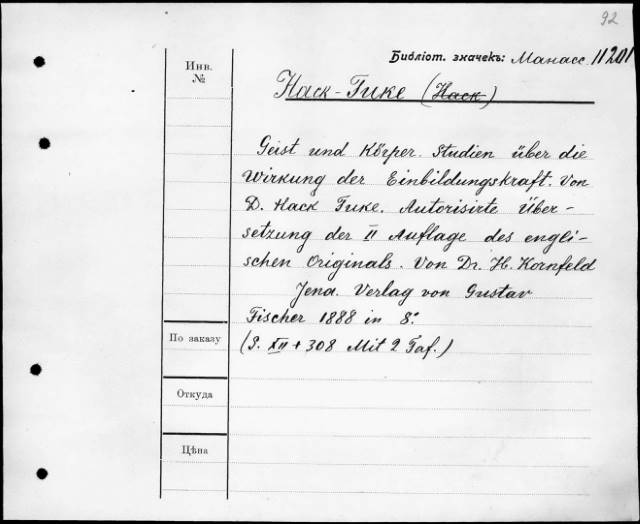 92
Библіот. значекъ: Манасс. 11201
Инв.
№
Hack-Tuke (Hack)
Geist und Körper. Studien über die
Wirkung der Einbildungskraft. Von
D. Hack Tuke. Autorisirte Über-
setzung der II Auflage des engli-
schen Originals. Von Dr. H. Kornfeld
Jena. Verlag von Gustav
Fischer 1888 in 8.°
По заказу
(S. XII + 308 Mit 2 Taf.)
Откуда
Цѣна